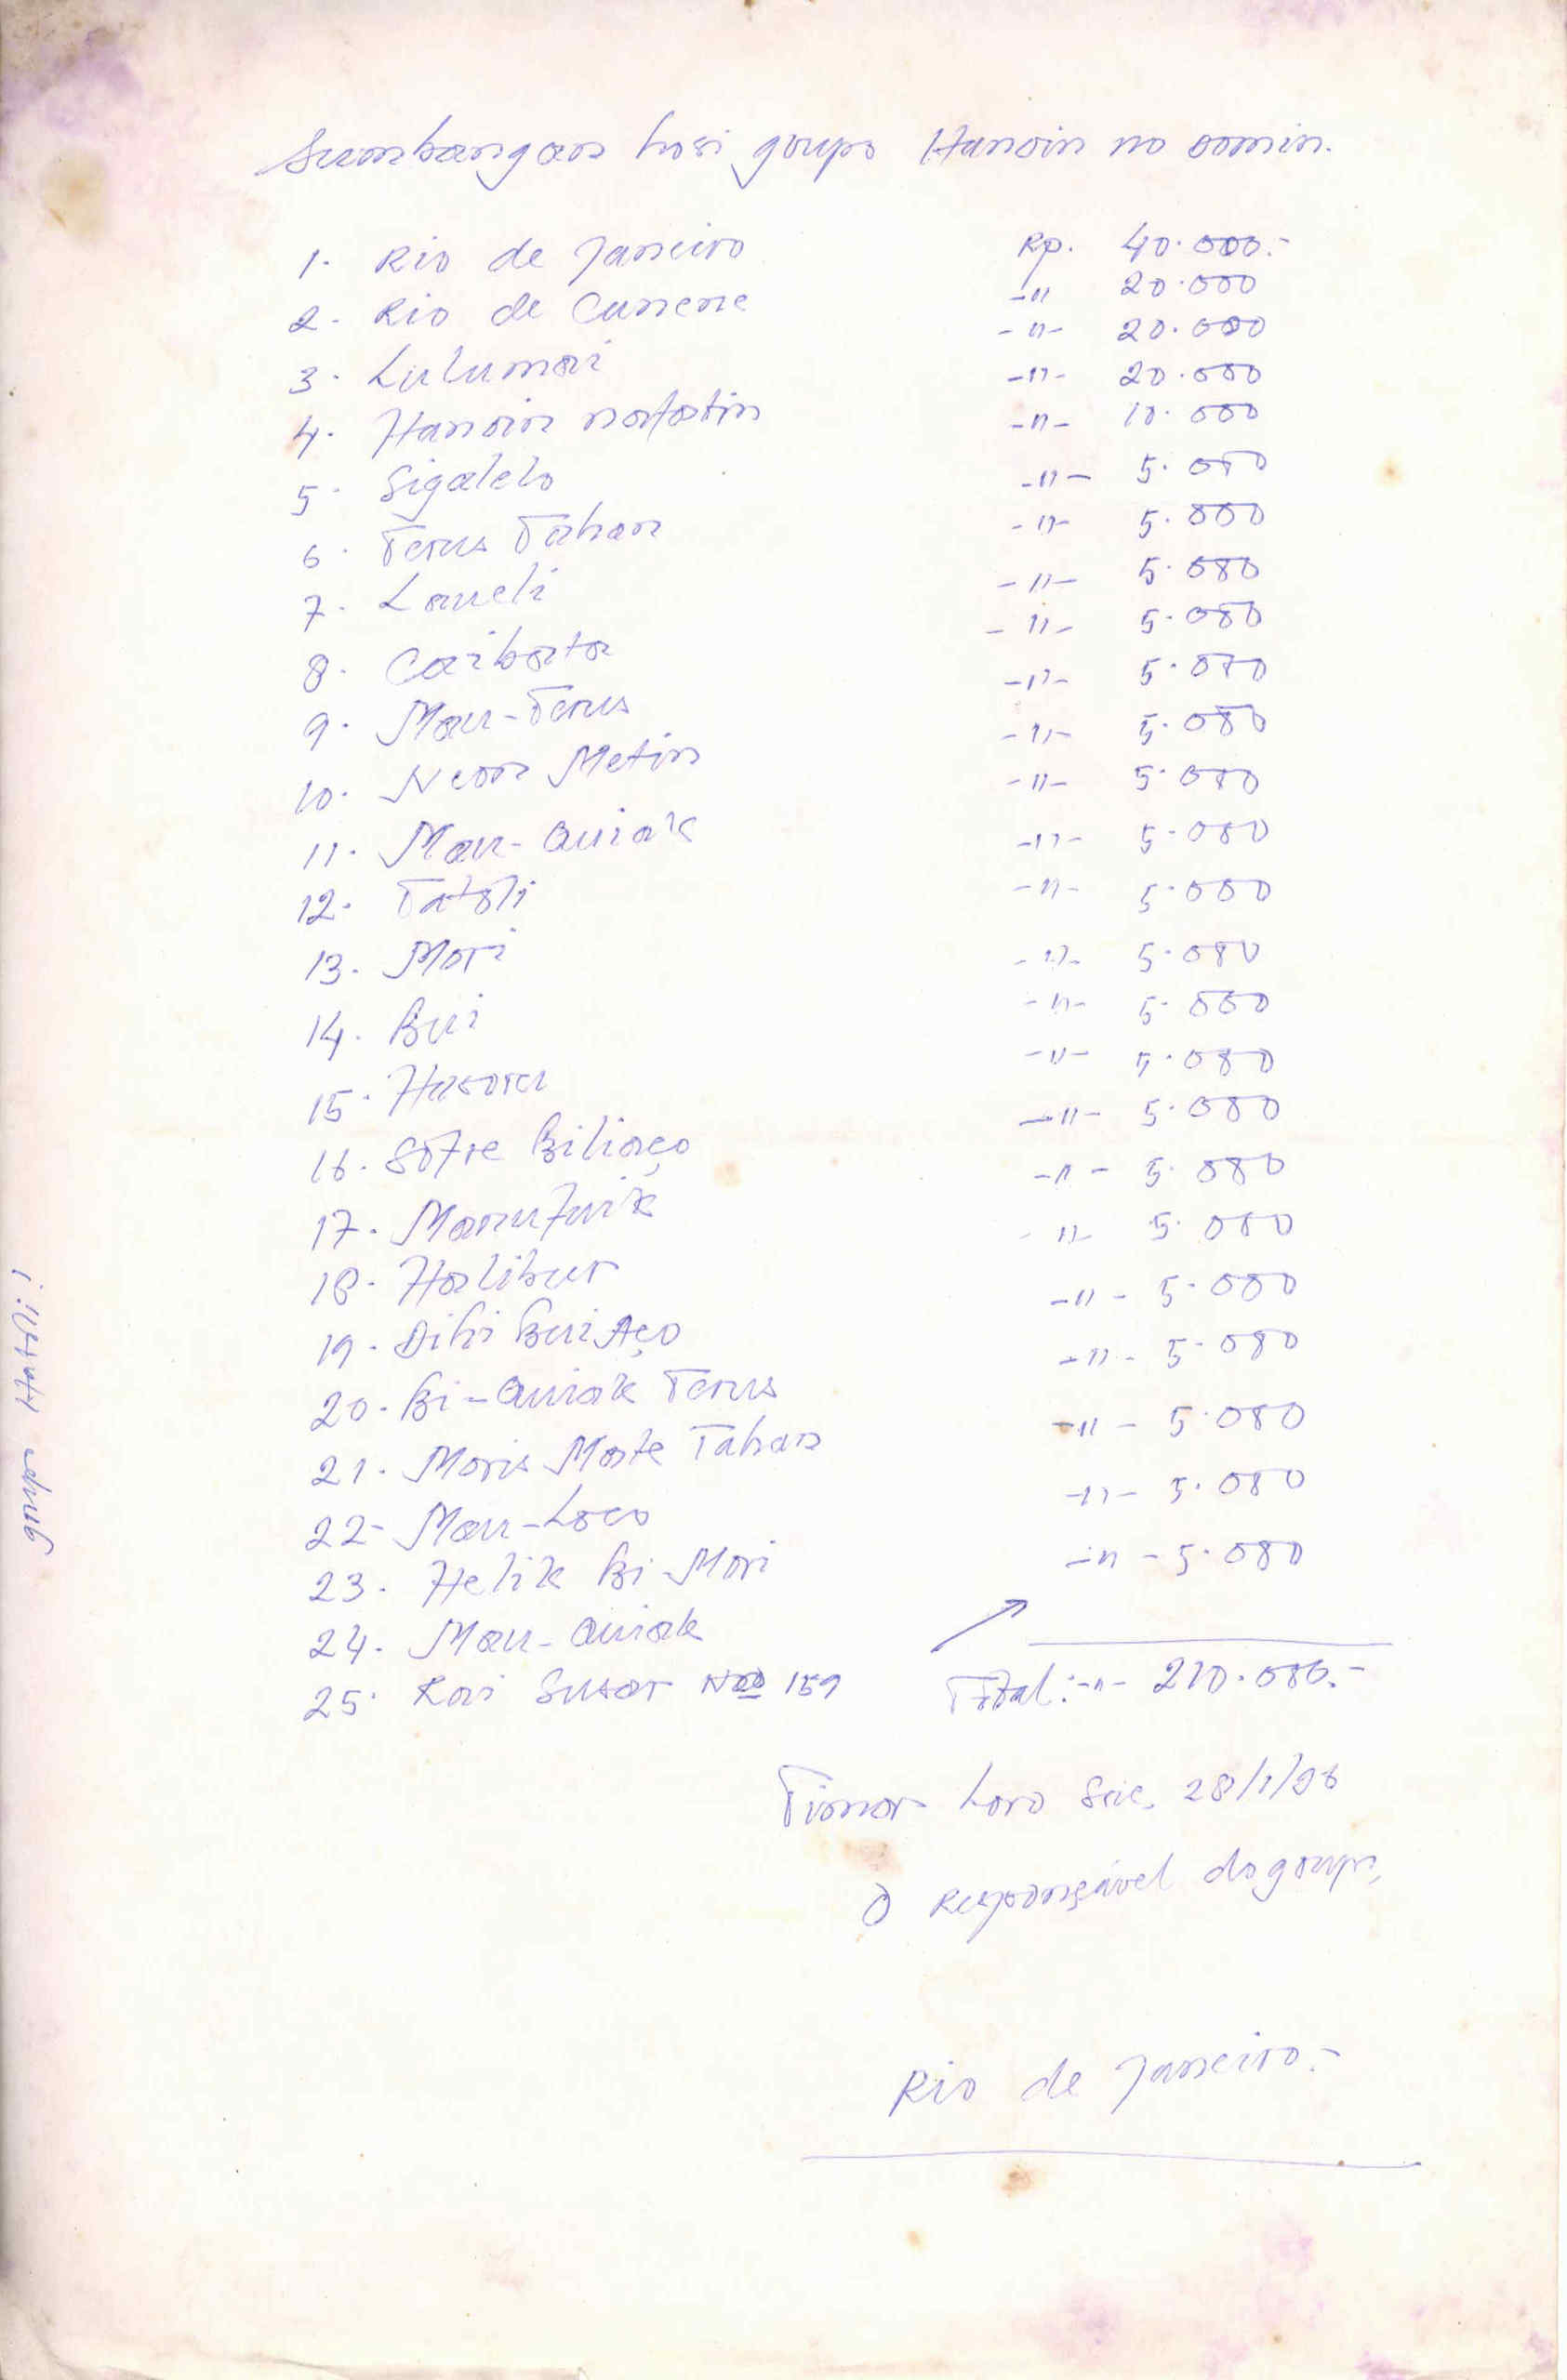 Sumbangan hosi grupo Hanoin no oomin.
1. Rio de Janeiro Rp. 40.000.-
2. Rio de Cunene -"- 20.000
3. Lulumai -"- 20.000
4. Hanoin nafatin -"- 20.000
5. Sigalelo -"- 10.000
6. Terus Tahan -"- 5.000
7. Laueli -"- 5.000
8. Caibata -"- 5.000
9. Mau-Terus -"- 5.000
10. Neon Metin -"- 5.000
11. Mau-Quiak -"- 5.000
12. Tatoli -"- 5.000
13. Mori -"- 5.000
14. Bui -"- 5.000
15. Hasoru -"- 5.000
16. Sofre Biliaço -"- 5.000
17. Manufuik -"- 5.000
18. Halibur -"- 5.000
19. Dihi Bui Aço -"- 5.000
20. Bi-Quiak Terus -"- 5.000
21. Moris Mate Tahan -"- 5.000
22- Mau-Loco -"- 5.000
23. Helik Bi-Mori -"- 5.000
24. Mau-Quiak -"- 5.000
25. Rai Susar Noo 159 -"- 5.000
Total: -"- 210.000.-
Timor Loro Sae, 28/1/96
O Responsável do grupo,
Rio de Janeiro.-
grupo Hatoli!